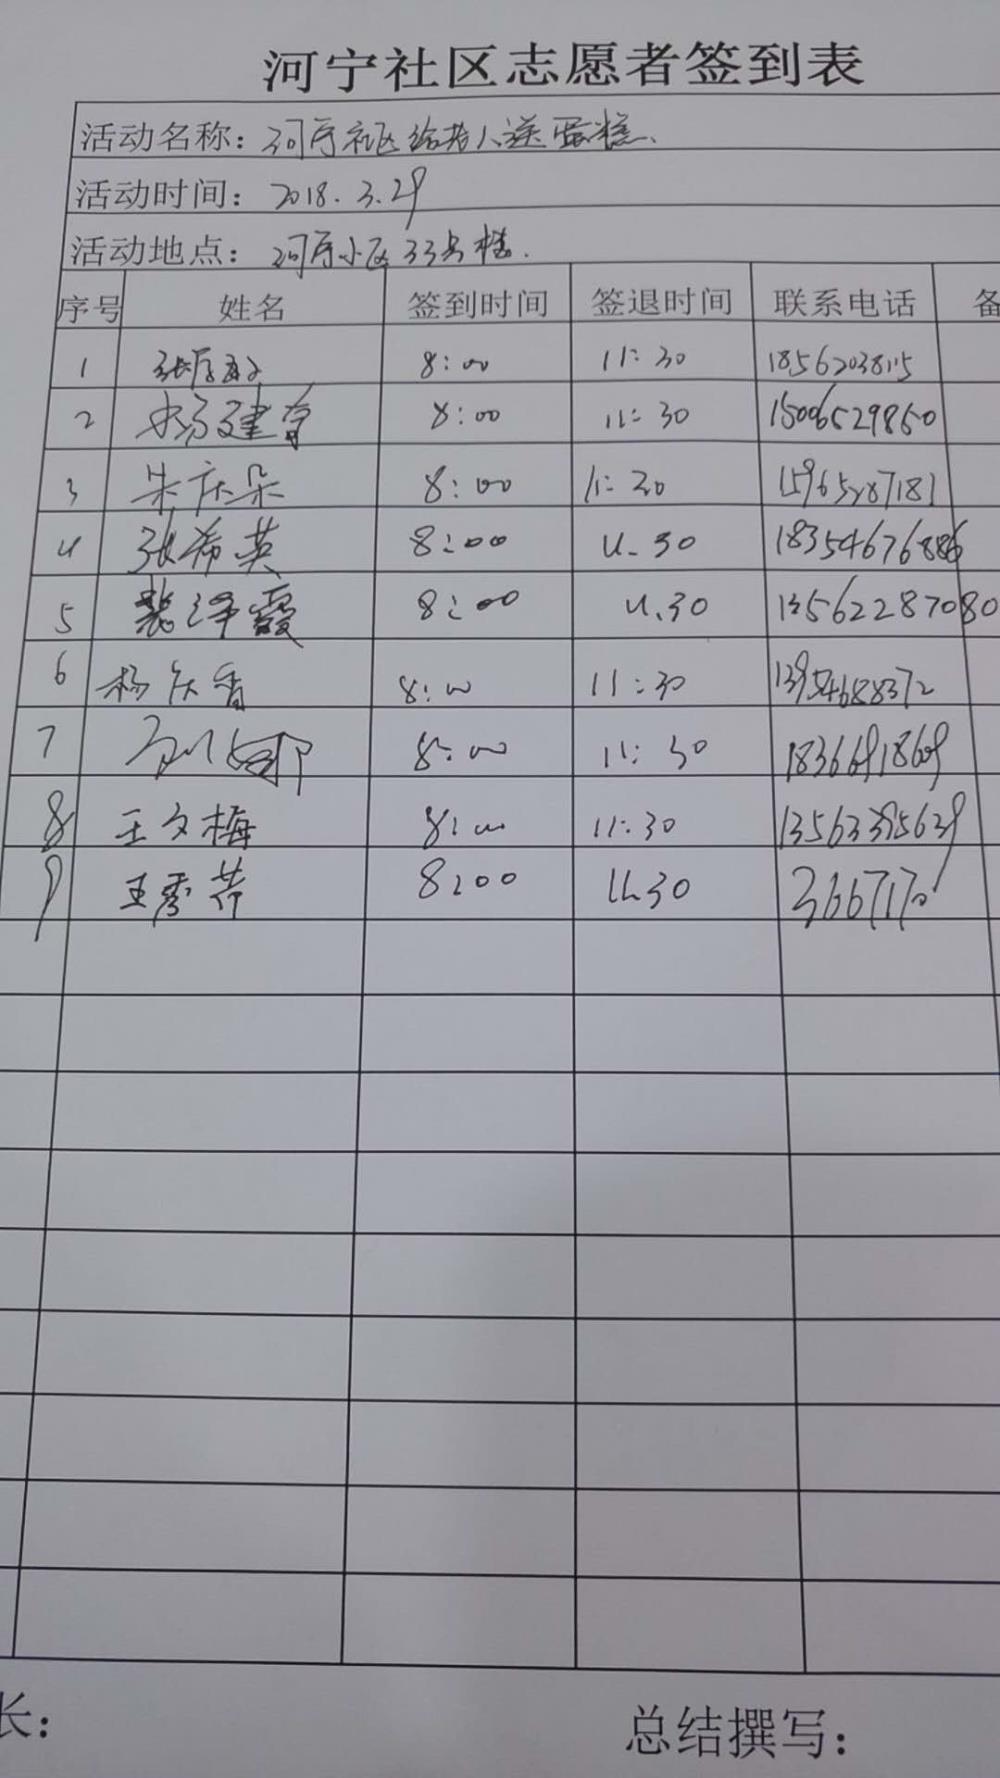 河宁社区志愿者签到表
活动名称：河宁社区给老人送蛋糕.
活动时间：2018.3.29
活动地点：河宁小区33号楼.
序号 姓名 签到时间 签退时间 联系电话 备
1 8:00 11:30 18562038115
2 杨建 8:00 11:30 15006529850
3 朱庆朵 8:00 11:30 15965287181
4 张希英 8:00 11.30 18354676886
5 裴泽霞 8:00 11.30 13562287080
6 杨庆香 8:00 11:30 13954688372
7 8:00 11:30 18366918609
8 王文梅 8:00 11:30
9 王秀芹 8:00 11.30
长：
总结撰写：